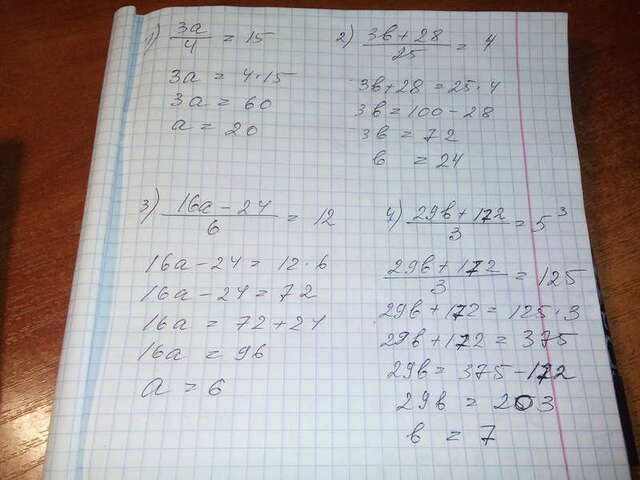 1) 3a/4 = 15
3a = 4·15
3a = 60
a = 20
2) 3в+28/25 = 4
3в+28 = 25·4
3в = 100-28
3в = 72
в = 24
3) 16a-24/6 = 12
16a-24 = 12·6
16a-24 = 72
16a = 72+24
16a = 96
a = 6
4) 29в+172/3 = 5³
29в+172/3 = 125
29в+172 = 125·3
29в+172 = 375
29в = 375-172
29в = 203
в = 7